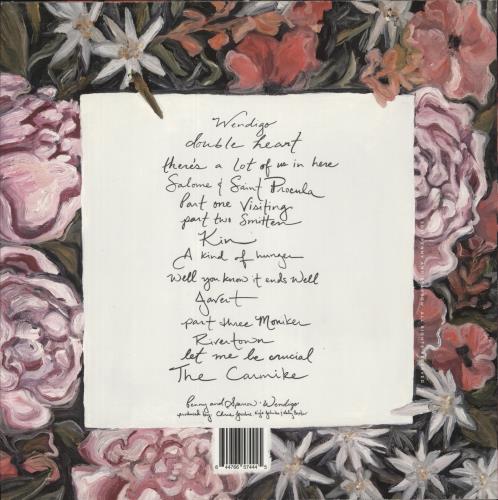 Wendigo
double heart
there's a lot of us in here
Salome & Saint Procula
Part one Visiting
part two Smitten
Kin
A kind of hunger
Well you know it ends well
Javert
part three Moniker
Rivertown
let me be crucial
The Carmike
Penny and Sparrow · Wendigo
produced by: Chris Jacobie
6 44766 57444 5